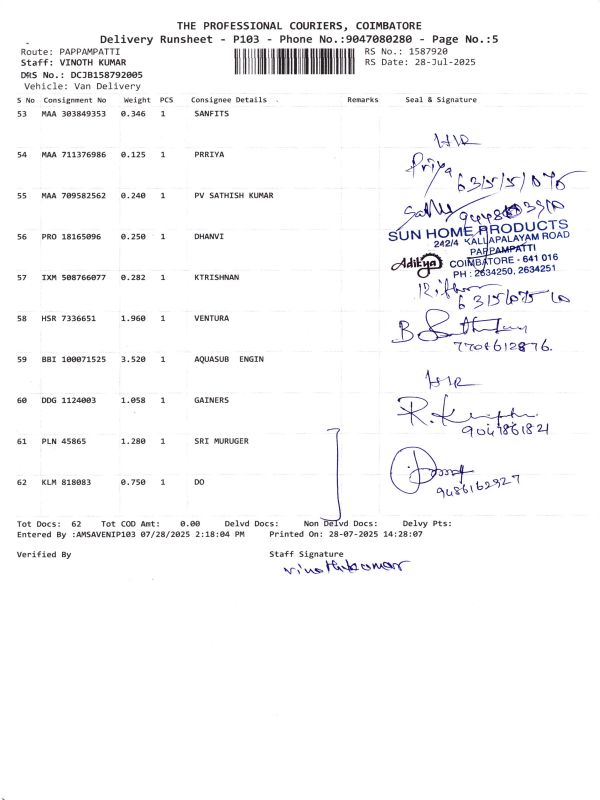 THE PROFESSIONAL COURIERS, COIMBATORE
Delivery Runsheet - P103 - Phone No.:9047080280 - Page No.:5
Route: PAPPAMPATTI RS No.: 1587920
Staff: VINOTH KUMAR RS Date: 28-Jul-2025
DRS No.: DCJB158792005
Vehicle: Van Delivery
S No Consignment No Weight PCS Consignee Details Remarks Seal & Signature
53 MAA 303849353 0.346 1 SANFITS
54 MAA 711376986 0.125 1 PRRIYA
Priya
55 MAA 709582562 0.240 1 PV SATHISH KUMAR
56 PRO 18165096 0.250 1 DHANVI
SUN HOME PRODUCTS
242/4 KALLAPALAYAM ROAD
PAPPAMPATTI
Aditya COIMBATORE - 641 016
PH : 2634250, 2634251
57 IXM 508766077 0.282 1 KTRISHNAN
58 HSR 7336651 1.960 1 VENTURA
7708612876.
59 BBI 100071525 3.520 1 AQUASUB ENGIN
60 DDG 1124003 1.058 1 GAINERS
9047861821
61 PLN 45865 1.280 1 SRI MURUGER
62 KLM 818083 0.750 1 DO
9486162927
Tot Docs: 62 Tot COD Amt: 0.00 Delvd Docs: Non Delvd Docs: Delvy Pts:
Entered By :AMSAVENIP103 07/28/2025 2:18:04 PM Printed On: 28-07-2025 14:28:07
Verified By Staff Signature
vinothkumar